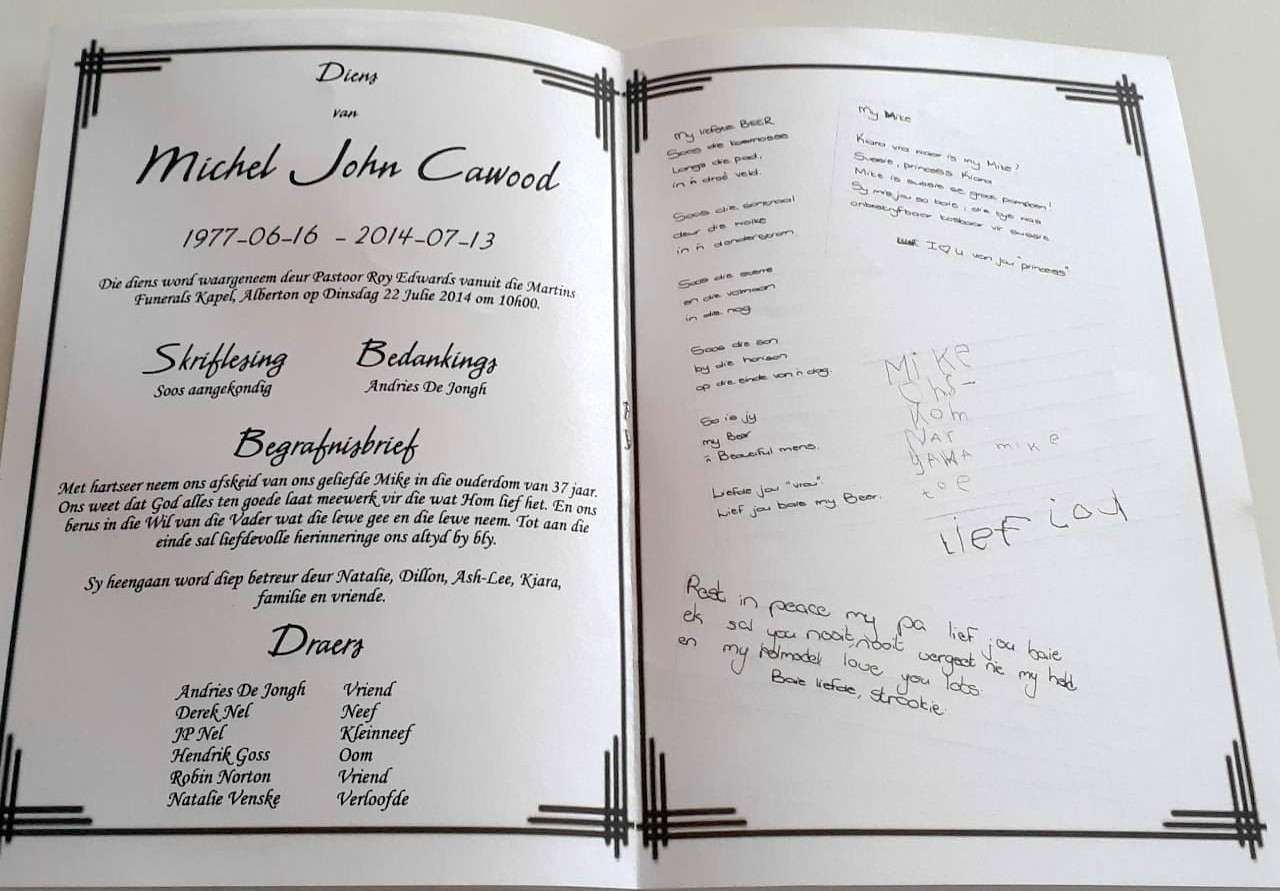 Diens
van
Michel John Cawood
1977-06-16 - 2014-07-13
Die diens word waargeneem deur Pastoor Roy Edwards vanuit die Martins
Funerals Kapel, Alberton op Dinsdag 22 Julie 2014 om 10h00.
Skriflesing
Soos aangekondig
Bedankings
Andries De Jongh
Begrafnisbrief
Met hartseer neem ons afskeid van ons geliefde Mike in die ouderdom van 37 jaar.
Ons weet dat God alles ten goede laat meewerk vir die wat Hom lief het. En ons
berus in die Wil van die Vader wat die lewe gee en die lewe neem. Tot aan die
einde sal liefdevolle herinneringe ons altyd by bly.
Sy heengaan word diep betreur deur Natalie, Dillon, Ash-Lee, Kiara,
familie en vriende.
Draers
Andries De Jongh Vriend
Derek Nel Neef
JP Nel Kleinneef
Hendrik Goss Oom
Robin Norton Vriend
Natalie Venske Verloofde
My liefste BEER
Soos die kosmosse
Langs die pad,
in 'n droë veld.
Soos die sonstraal
deur die wolke
in 'n donderstorm.
Soos die sterre
en die volmaan
in die nag
Soos die son
by die horison
op die einde van 'n dag.
So is jy
my Beer
'n Beautiful mens.
Liefde jou "vrou".
Lief jou baie my Beer.
My Mike
Kiara vra waar is my Mike?
Sussie, princess Kiara
Mike is sussie se groot pampoen!
Sy mis jou so baie, die tye was
onbeskryfbaar kosbaar vir sussie
I ♡ u van jou "princess"
Mike
Kom
Nar
mike
toe
lief jou
Rest in peace my pa lief jou baie
ek sal you nooit, nooit vergeet nie my held
en my rolmodel love you lots.
Baie liefde, strookie.